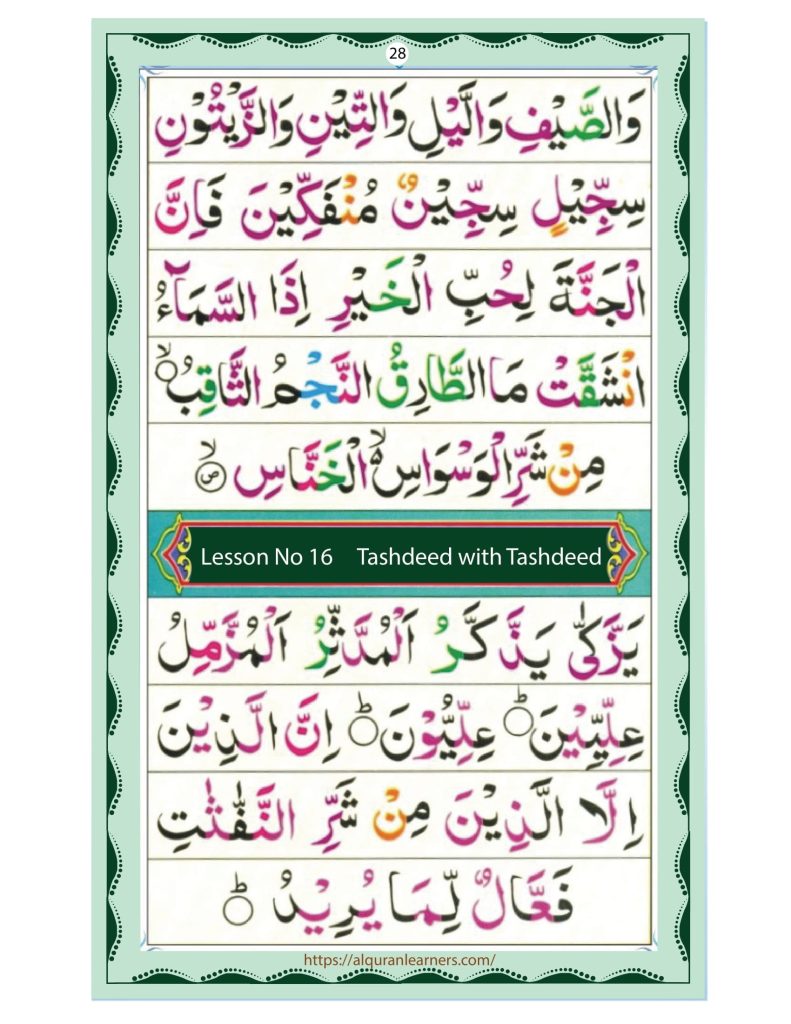 28
وَالصَّيْفِ وَالَّيْلِ وَالتِّيْنِ وَالزَّيْتُوْنِ
سِجِّيْلٍ سِجِّيْنٌ مُنْفَكِّيْنَ فَاِنَّ
الْجَنَّةَ لِحُبِّ الْخَيْرِ اِذَا السَّمَآءُ
انْشَقَّتْ مَا الطَّارِقُ النَّجْمُ الثَّاقِبُ ۙ
مِنْ شَرِّ الْوَسْوَاسِ ۙ الْخَنَّاسِ ۙ ص
Lesson No 16 Tashdeed with Tashdeed
يَزَّكّٰى يَذَّكَّرُ اَلْمُدَّثِّرُ اَلْمُزَّمِّلُ
عِلِّيِّيْنَ ؕ عِلِّيُّوْنَ ؕ اِنَّ الَّذِيْنَ
اِلَّا الَّذِيْنَ مِنْ شَرِّ النَّفّٰثٰتِ
فَعَّالٌ لِّمَا يُرِيْدُ ؕ
https://alquranlearners.com/